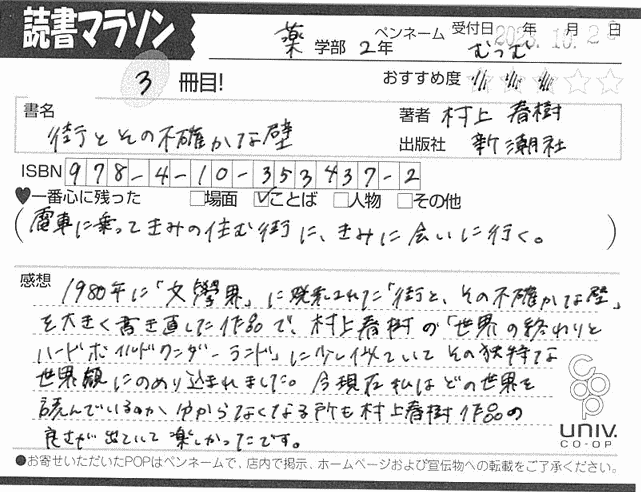 読書マラソン
薬 学部 2年 ペンネーム むつむ 受付日 2023.10.2 年 月 日
3 冊目! おすすめ度 ☆☆☆☆☆
書名 街とその不確かな壁
著者 村上 春樹
出版社 新潮社
ISBN 978-4-10-353437-2
♥一番心に残った □場面 ☑ことば □人物 □その他
(電車に乗ってきみの住む街に、きみに会いに行く。)
感想
1980年に「文學界」に発表された「街と、その不確かな壁」
を大きく書き直した作品で、村上春樹の「世界の終わりと
ハードボイルドワンダーランド」に少し似ていてその独特な
世界観にのめり込まれました。今現在私はどの世界を
読んでいるのか、ゆからなくなる所も村上春樹作品の
良さが出ていて楽しかったです。
coop
UNIV.
CO-OP
●お寄せいただいたPOPはペンネームで、店内で掲示、ホームページおよび宣伝物への転載をご了承ください。